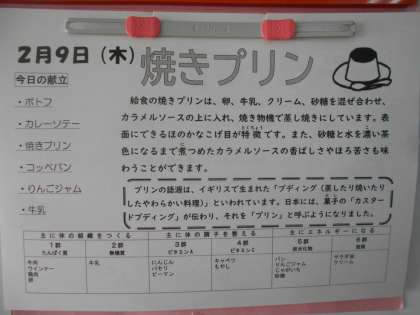 2月9日(木)
焼きプリン
今日の献立
・ポトフ
・カレーソテー
・焼きプリン
・コッペパン
・りんごジャム
・牛乳
給食の焼きプリンは、卵、牛乳、クリーム、砂糖を混ぜ合わせ、
カラメルソースの上に入れ、焼き物機で蒸し焼きにしています。表
面にできるほのかなこげ目が特徴です。また、砂糖と水を濃い茶
色になるまで煮つめたカラメルソースの香ばしさやほろ苦さも味
わうことができます。
プリンの語源は、イギリスで生まれた「プディング(蒸したり焼いたり
したやわらかい料理)」といわれています。日本には、菓子の「カスター
ドプディング」が伝わり、それを「プリン」と呼ぶようになりました。
主に体の組織をつくる 主に体の調子を整える 主にエネルギーになる
1群 2群 3群 4群 5群 6群
たんぱく質 無機質 ビタミンA ビタミンC 炭水化物 脂質
牛肉 牛乳 にんじん キャベツ パン サラダ油
ウインナー パセリ もやし りんごジャム クリーム
鶏肉 ピーマン じゃがいも
卵 砂糖